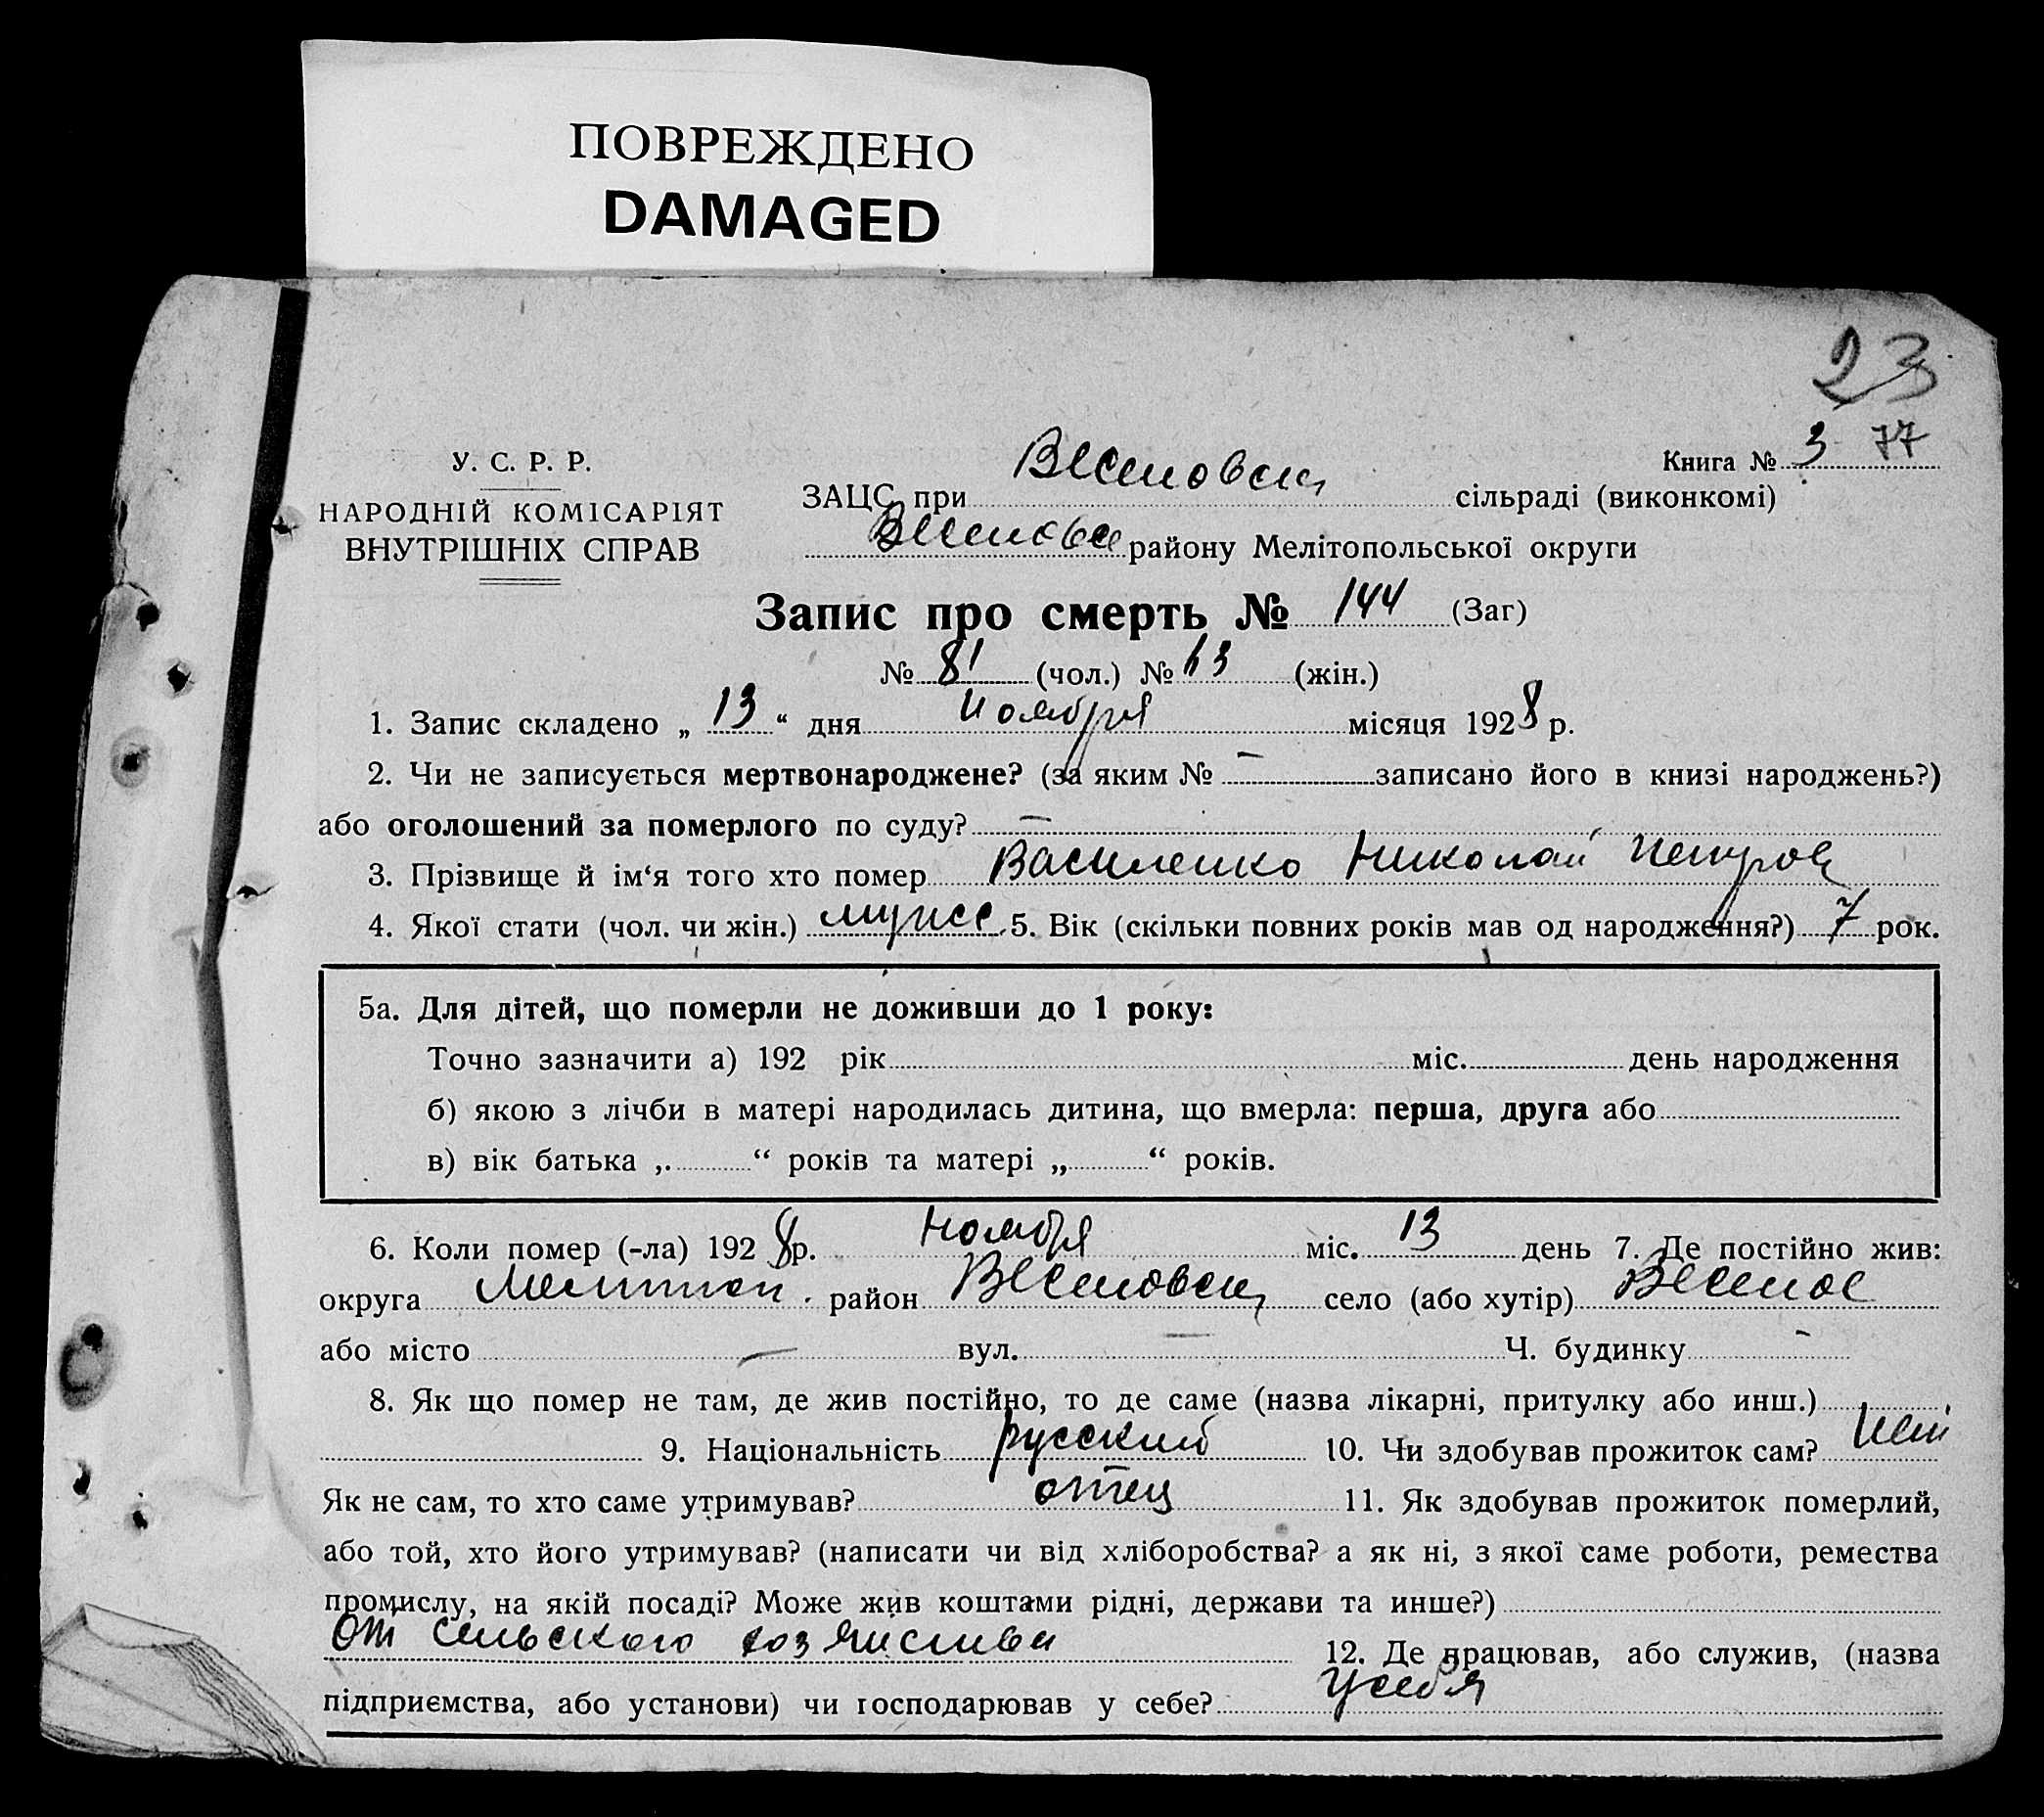 ПОВРЕЖДЕНО
DAMAGED
23
У. С. Р. Р.
НАРОДНІЙ КОМІСАРІЯТ
ВНУТРІШНІХ СПРАВ
Книга № 3 77
ЗАЦС при Веселовск сільраді (виконкомі)
Веселовск району Мелітопольської округи
Запис про смерть № 144 (Заг)
№ 81 (чол.) № 63 (жін.)
1. Запис складено „ 13 “ дня ноября місяця 1928 р.
2. Чи не записується мертвонароджене? (за яким № — записано його в книзі народжень?)
або оголошений за померлого по суду? —
3. Прізвище й ім‘я того хто помер Василенко Николай Петров
4. Якої стати (чол. чи жін.) мужск 5. Вік (скільки повних років мав од народження?) 7 рок.
5а. Для дітей, що померли не доживши до 1 року:
Точно зазначити а) 192 рік міс. день народження
б) якою з лічби в матері народилась дитина, що вмерла: перша, друга або
в) вік батька „ “ років та матері „ “ років.
6. Коли помер (-ла) 1928 р. ноября міс. 13 день 7. Де постійно жив:
округа Мелитоп. район Веселовск село (або хутір) Веселое
або місто — вул. — Ч. будинку —
8. Як що помер не там, де жив постійно, то де саме (назва лікарні, притулку або инш.)
9. Національність русский 10. Чи здобував прожиток сам? нет
Як не сам, то хто саме утримував? отец 11. Як здобував прожиток померлий,
або той, хто його утримував? (написати чи від хліборобства? а як ні, з якої саме роботи, ремества
промислу, на якій посаді? Може жив коштами рідні, держави та инше?)
от сельского хозяйства 12. Де працював, або служив, (назва
підприємства, або установи) чи господарював у себе? у себя